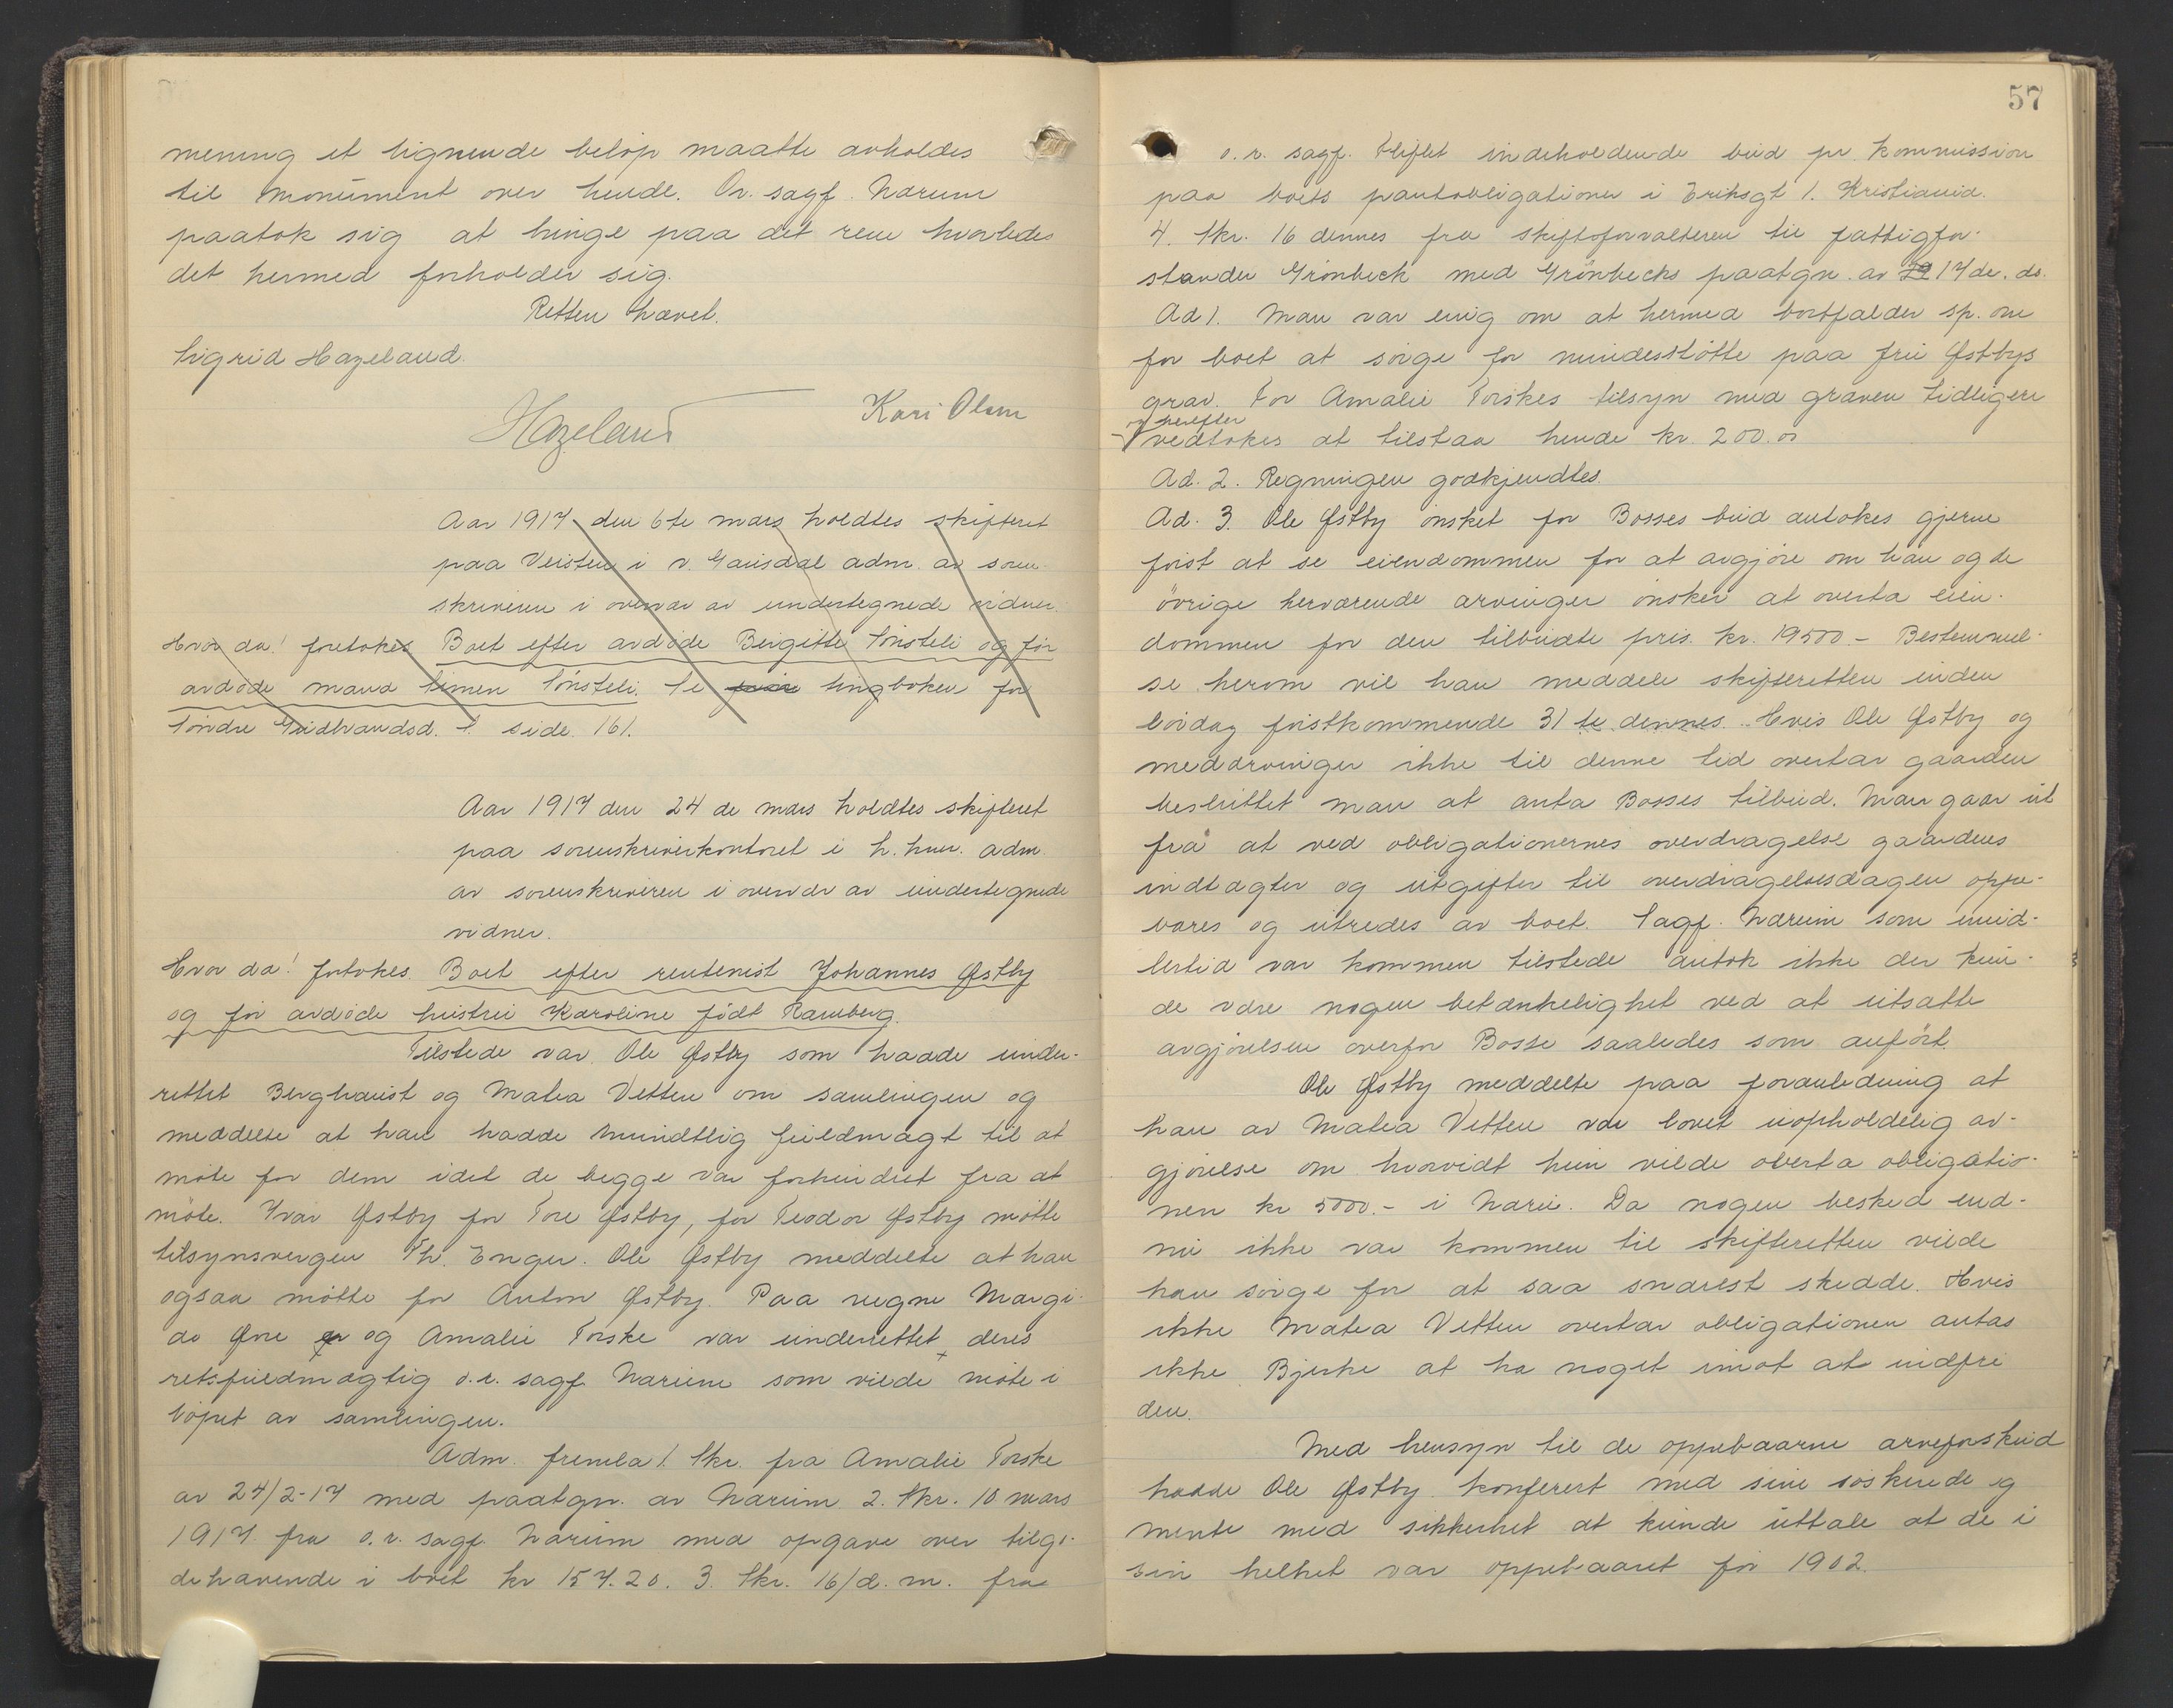 mening et lignende beløp maatte avholdes
til monument over hende. Or. sagf. Narum
paatok sig at bringe paa det rene hvorledes
det hermed forholder sig.
Retten hævet.
Sigrid Hazeland.
Hazeland Kari Olsen
Aar 1917 den 6te mars holdtes skifteret
paa Veisten i v. Gausdal adm. av soren-
skriveren i overvær av undertegnede vidner.
Hvor da! foretokes Boet efter avdøde Birgitte Sønsteli og før
avdøde mand Simen Sønsteli. Se tingboken for
Søndre Gudbrandsd. s. side 161.
Aar 1917 den 24 de mars holdtes skifteret
paa sorenskriverkontoret i L.hmr. adm.
av sorenskriveren i overvær av undertegnede
vidner.
Hvor da! foretokes. Boet efter rentenist Johannes Østby
og før avdøde hustru Karoline født Ramberg.
Tilstede var Ole Østby som hadde under-
rettet Berghaust og Matea Vetten om samlingen og
meddelte at han hadde mundtlig fuldmagt til at
møte for dem idet de begge var forhindret fra at
møte. Ivar Østby for Tore Østby, for Teodor Østby møtte
tilsynsvergen Th. Enger. Ole Østby meddelte at han
ogsaa møtte for Anton Østby. Paa vegne Margi-
do Øne og Amalie Torske var underrettet deres
retsfuldmægtig o.r. sagf. Narum som vilde møte i
løpet av samlingen.
Adm. fremla 1. Skr. fra Amalie Torske
av 24/2-17 med paategn. av Narum 2. Skr. 10 mars
1917 fra o.r. sagf. Narum med opgave over tilgo-
dehavende i boet kr 157.20. 3. Skr. 16/d.m. fra
57
o.r. sagf. indeholdende bud pr. kommission
paa boets pantobligationer i Eriksgt 1. Kristiania.
4. Skr. 16 dennes fra skifteforvalteren til fattigfor-
stander Grønbeck med Grønbecks paategn. av 17 de. ds.
Ad 1. Man var enig om at hermed bortfalder sp. om
for boet at sørge for mindestøtte paa fru Østbys
grav. For Amalie Torskes tilsyn med graven tidligere
og herefter
vedtokes at tilstaa hende kr. 200.00
Ad. 2. Regningen godkjendtes.
Ad. 3. Ole Østby ønsket før Bosses bud antokes gjerne
først at se eiendommen for at avgjøre om han og de
øvrige herværende arvinger ønsker at overta eien-
dommen for den tilbudte pris kr. 19500.- Bestemmel-
se herom vil han meddele skifteretten inden
lørdag førstkommende 31 te dennes. Hvis Ole Østby og
medarvinger ikke til denne tid overtar gaarden
besluttet man at anta Bosses tilbud. Man gaar ut
fra at ved obligationernes overdragelse gaardens
indtægter og utgifter til overdragelsesdagen oppe-
bæres og utredes av boet. Sagf. Narum som imid-
lertid var kommen tilstede antok ikke der kun-
de være nogen betænkelighet ved at utsætte
avgjørelsen overfor Bosse saaledes som anført.
Ole Østby meddelte paa foranledning at
han av Matea Vetten var lovet uopholdelig av-
gjørelse om hvorvidt hun vilde overta obligatio-
nen kr 5000.- i Narui. Da nogen besked end-
nu ikke var kommen til skifteretten vilde
han sørge for at saa snarest skedde. Hvis
ikke Matea Vetten overtar obligationen antas
ikke Bjerke at ha noget imot at indfri
den.
Med hensyn til de oppebaarne arveforskud
hadde Ole Østby konferert med sine søskende og
mente med sikkerhet at kunde uttale at de i
sin helhet var oppebaaret før 1902.